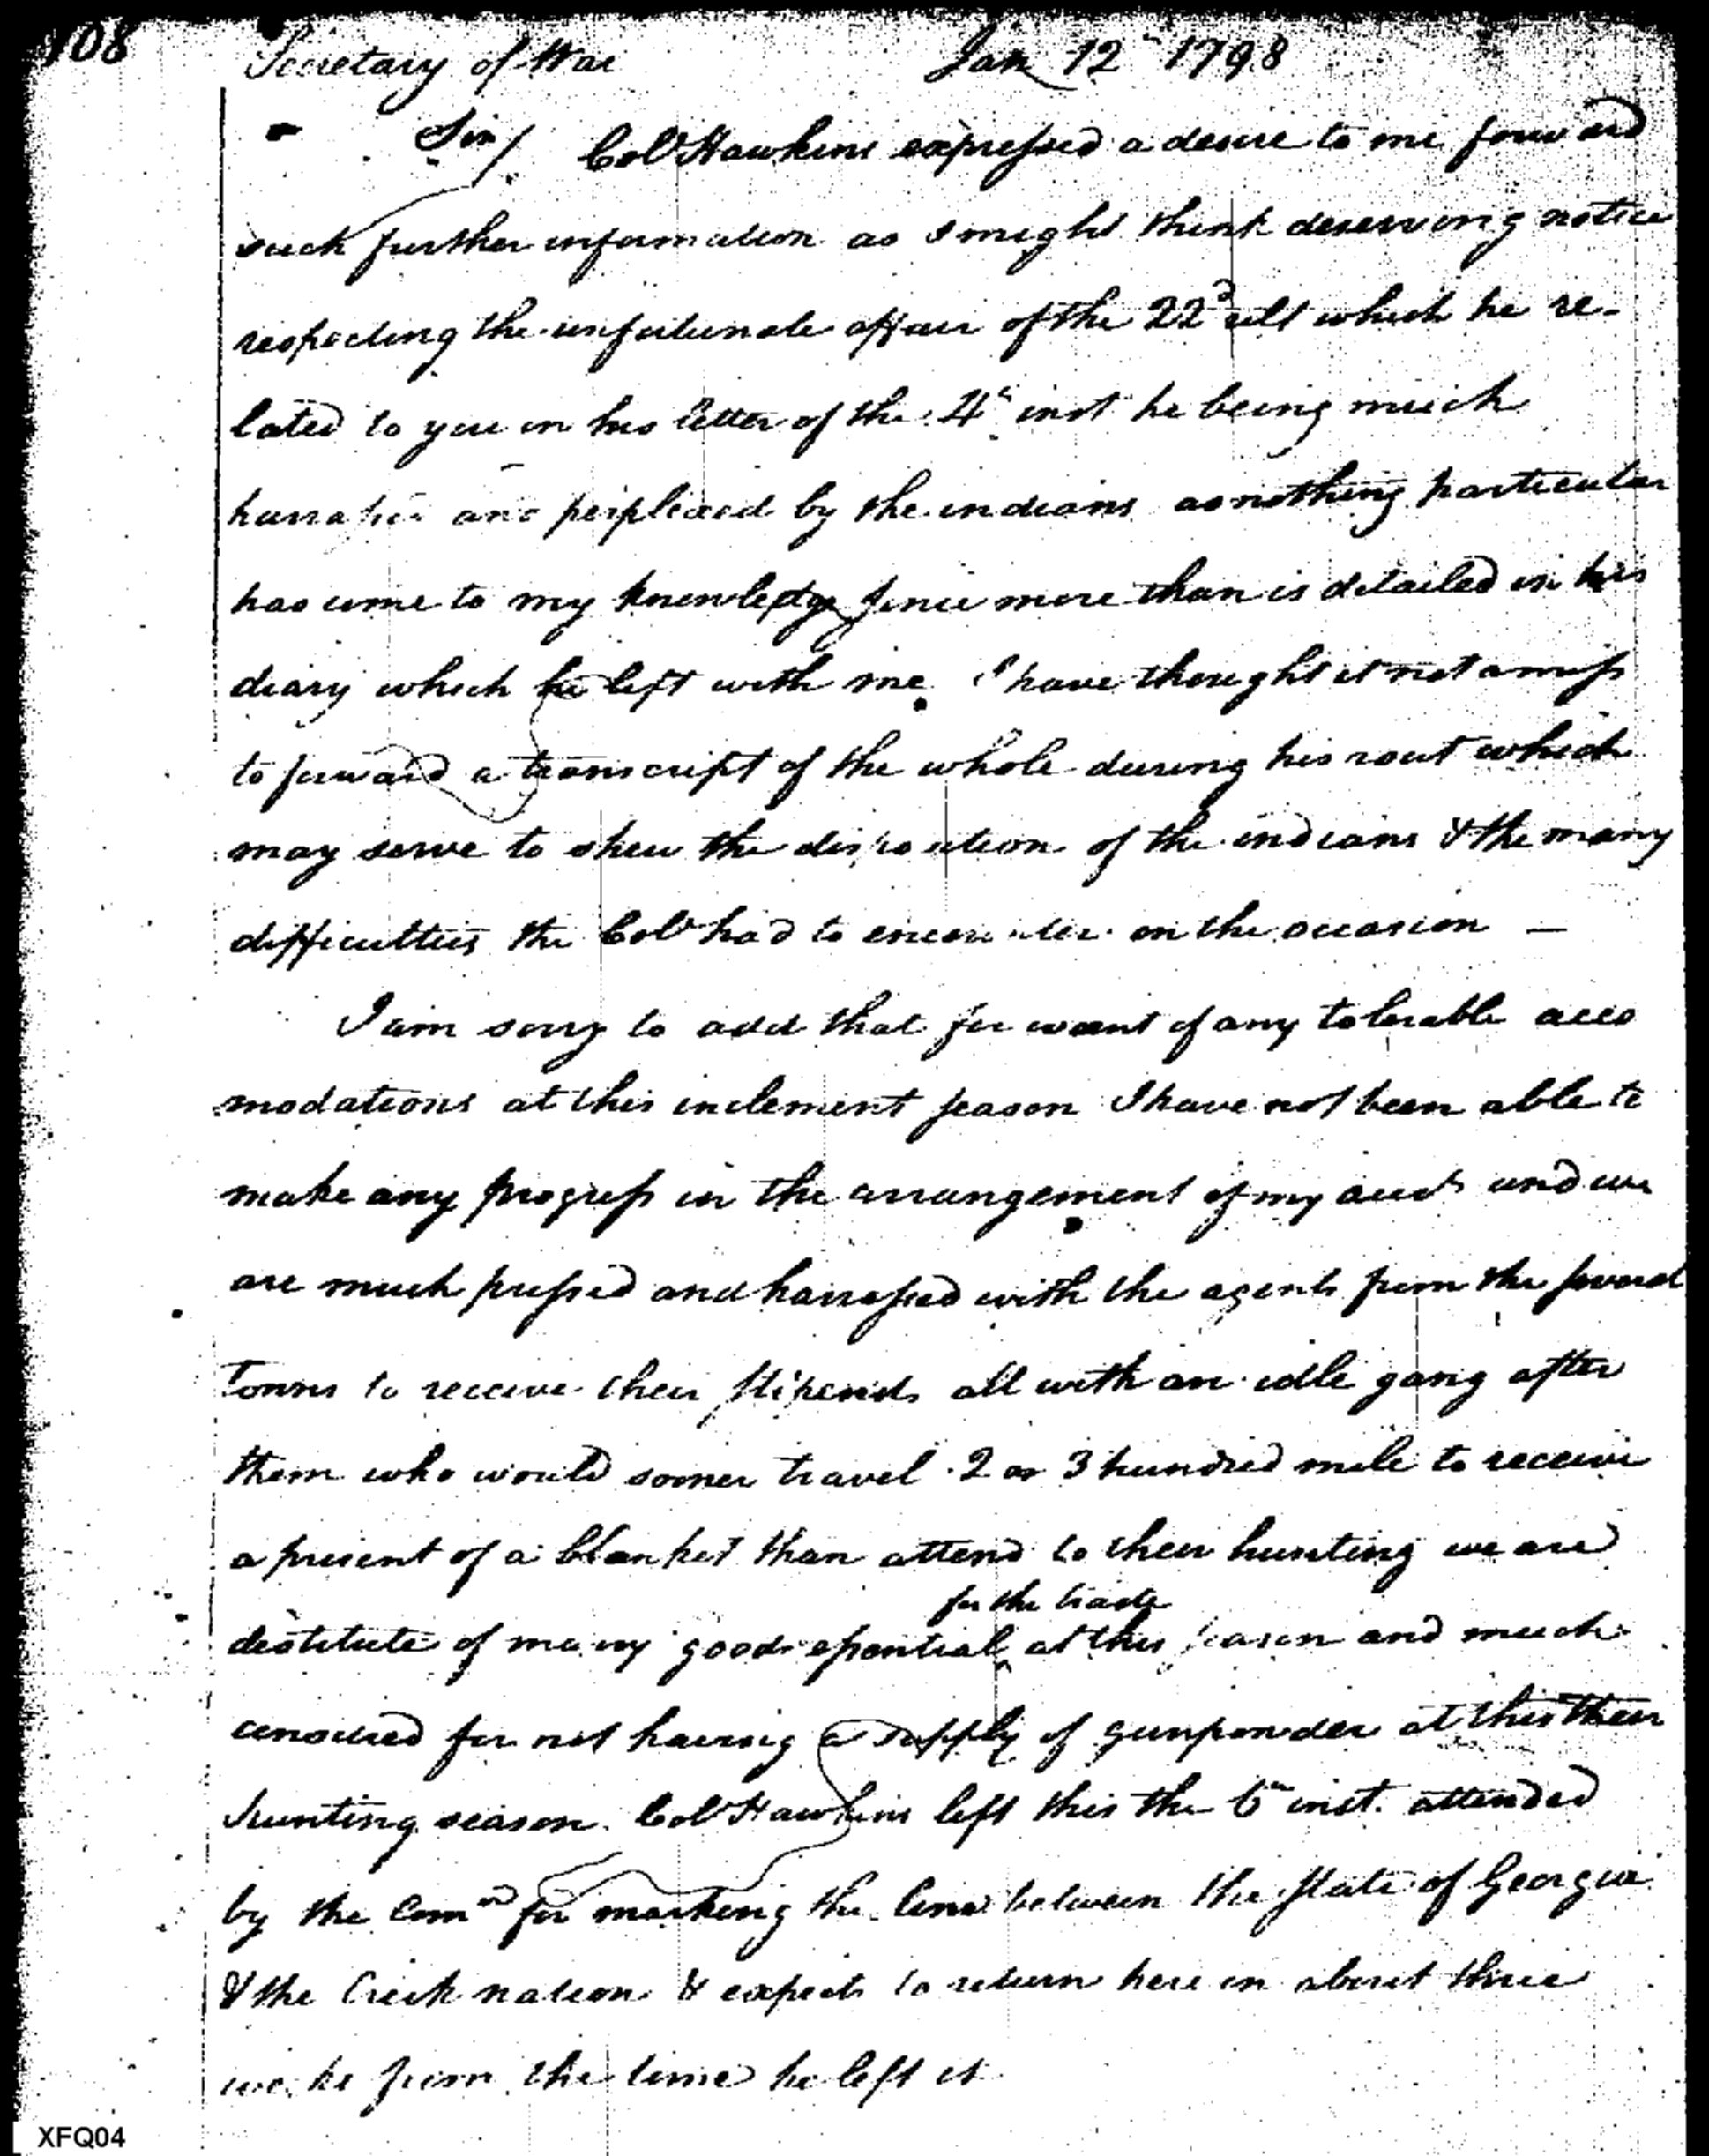 108
Secretary of War Jan 12th 1798
Sir/ Col Hawkins expressed a desire to me forward
such further information as I might think deserving notice
respecting the unfortunate affair of the 22d ult which he re-
lated to you in his letter of the 4th inst he being much
harrassed and perplexed by the indians as nothing particular
has come to my knowledge since more than is detailed in his
diary which he left with me I have thought it not amiss
to forward a transcript of the whole during his rout which
may serve to shew the disposition of the indians & the many
difficulties the Col had to encounter on the occasion —
I am sorry to add that for want of any tolerable acco
modations at this inclement season I have not been able to
make any progress in the arrangement of my accts and we
are much pressed and harrassed with the agents from the several
Towns to receive their stipends all with an idle gang after
them who would sooner travel 2 or 3 hundred mile to receive
a present of a blanket than attend to their hunting we are
for the trade
destitute of many goods essential at this season and much
censured for not having a supply of gunpowder at this their
hunting season. Col Hawkins left this the 6th inst. attended
by the Comrs for marking the line between the State of Georgia
& the Creek nation & expects to return here in about three
weeks from the time he left it
XFQ04